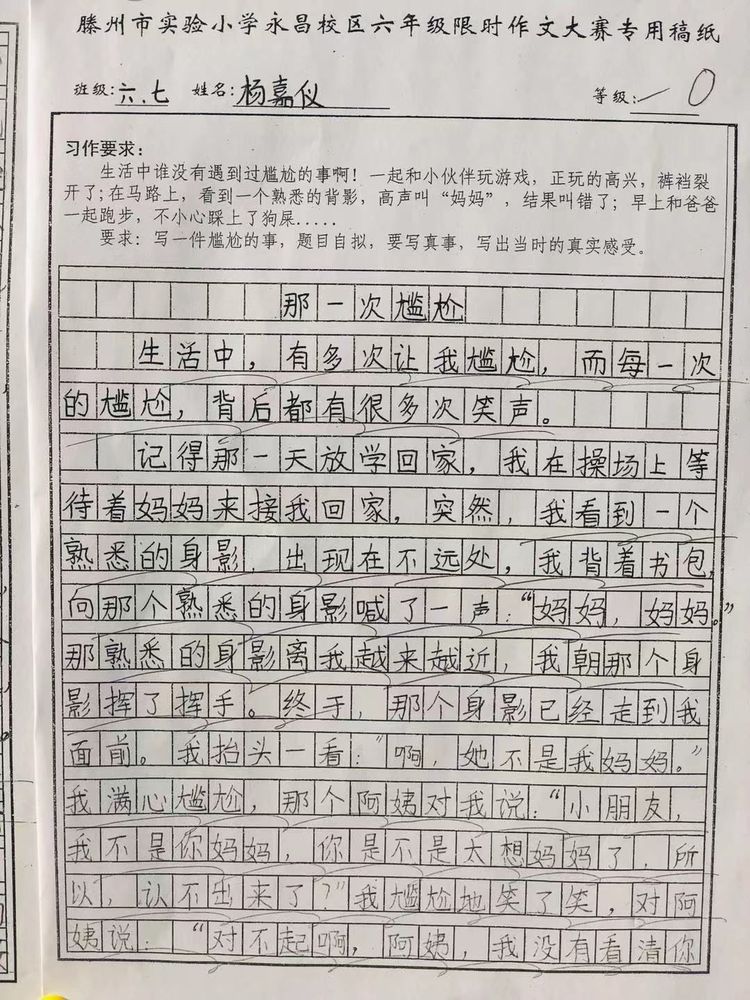 滕州市实验小学永昌校区六年级限时作文大赛专用稿纸
班级:六.七 姓名:杨嘉仪 等级:
习作要求:
生活中谁没有遇到过尴尬的事啊！一起和小伙伴玩游戏，正玩的高兴，裤裆裂
开了;在马路上，看到一个熟悉的背影，高声叫“妈妈”，结果叫错了；早上和爸爸
一起跑步，不小心踩上了狗屎.....
要求：写一件尴尬的事，题目自拟，要写真事，写出当时的真实感受。
那一次尴尬
生活中，有多次让我尴尬，而每一次
的尴尬，背后都有很多次笑声。
记得那一天放学回家，我在操场上等
待着妈妈来接我回家，突然，我看到一个
熟悉的身影.出现在不远处，我背着书包，
向那个熟悉的身影喊了一声：“妈妈，妈妈。”
那熟悉的身影离我越来越近，我朝那个身
影挥了挥手。终于，那个身影已经走到我
面前。我抬头一看：“啊，她不是我妈妈。”
我满心尴尬，那个阿姨对我说：“小朋友，
我不是你妈妈，你是不是太想妈妈了，所
以，认不出来了？”我尴尬地笑了笑，对阿
姨说：“对不起啊，阿姨，我没有看清你